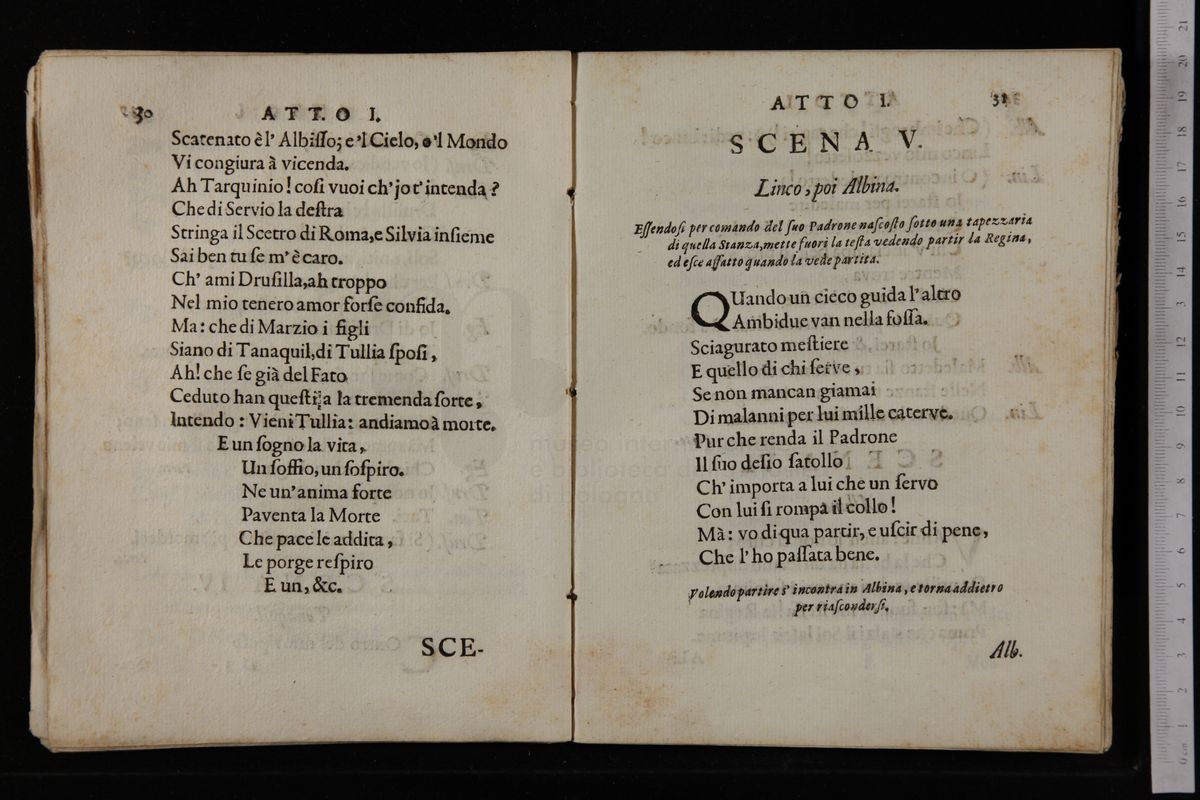 30
ATTO I.
Scatenato è l' Albisso; e 'l Cielo, e 'l Mondo
Vi congiura à vicenda.
Ah Tarquinio! così vuoi ch' jo t' intenda?
Che di Servio la destra
Stringa il Scetro di Roma, e Silvia insieme
Sai ben tu se m' è caro.
Ch' ami Drusilla, ah troppo
Nel mio tenero amor forse confida.
Ma: che di Marzio i figli
Siano di Tanaquil, di Tullia sposi,
Ah! che se già del Fato
Ceduto han questi a la tremenda sorte,
Intendo: Vieni Tullia: andiamo à morte.
E un sogno la vita,
Un soffio, un sospiro.
Ne un' anima forte
Paventa la Morte
Che pace le addita,
Le porge respiro
E un, &c.
SCE-
ATTO I.
31
SCENA V.
Linco, poi Albina.
Essendosi per comando del suo Padrone nascosto sotto una tapezzaria
di quella Stanza, mette fuori la testa vedendo partir la Regina,
ed esce affatto quando la vede partita.
Quando un cieco guida l' altro
Ambidue van nella fossa.
Sciagurato mestiere
E quello di chi serve,
Se non mancan giamai
Di malanni per lui mille caterve.
Pur che renda il Padrone
Il suo desio satollo
Ch' importa a lui che un servo
Con lui si rompa il collo!
Mà: vo di qua partir, e uscir di pene,
Che l' ho passata bene.
Volendo partire s' incontra in Albina, e torna addietro
per riasconderſi.
Alb.